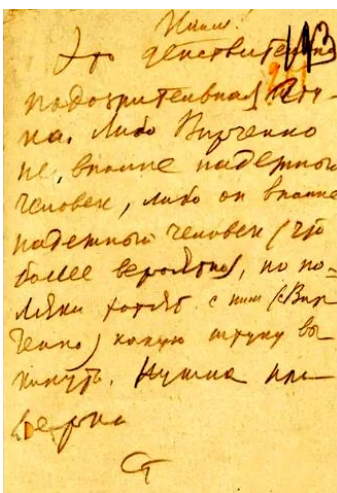 Это действительно
подозрительная точ-
ка. Либо Вирченко
не вполне надежный
человек, либо он вполне
надежный человек (что
более вероятно), но по-
ляки хотят с ним (Вир-
ченко) какую штуку вы-
кинуть. Нужна про-
верка
Ст